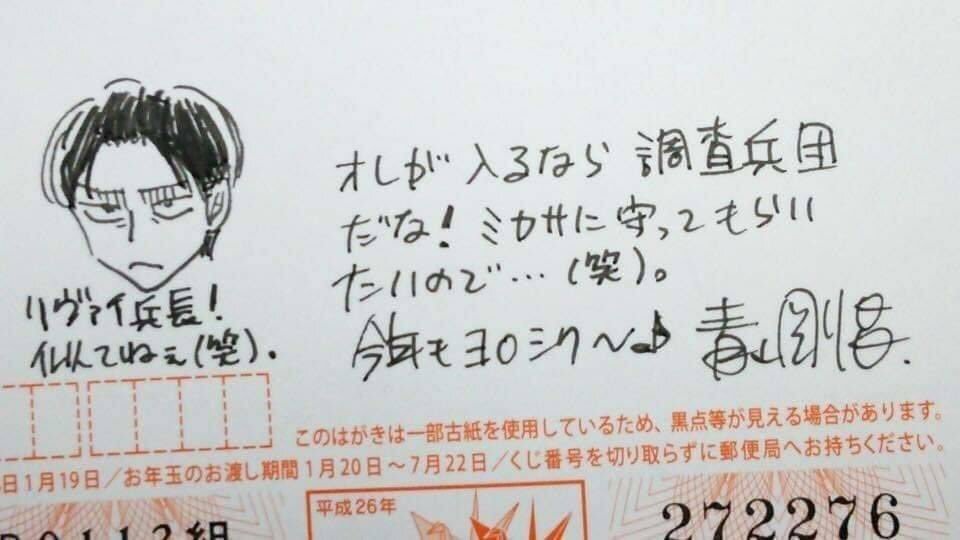 オレが入るなら調査兵団
だな！ミカサに守ってもらい
たいので…(笑)。
今年もヨロシク〜♪ 青山剛昌.
リヴァイ兵長！
似てねぇ(笑)。
このはがきは一部古紙を使用しているため、黒点等が見える場合があります。
日1月19日／お年玉のお渡し期間 1月20日～7月22日／くじ番号を切り取らずに郵便局へお持ちください。
平成26年
272276